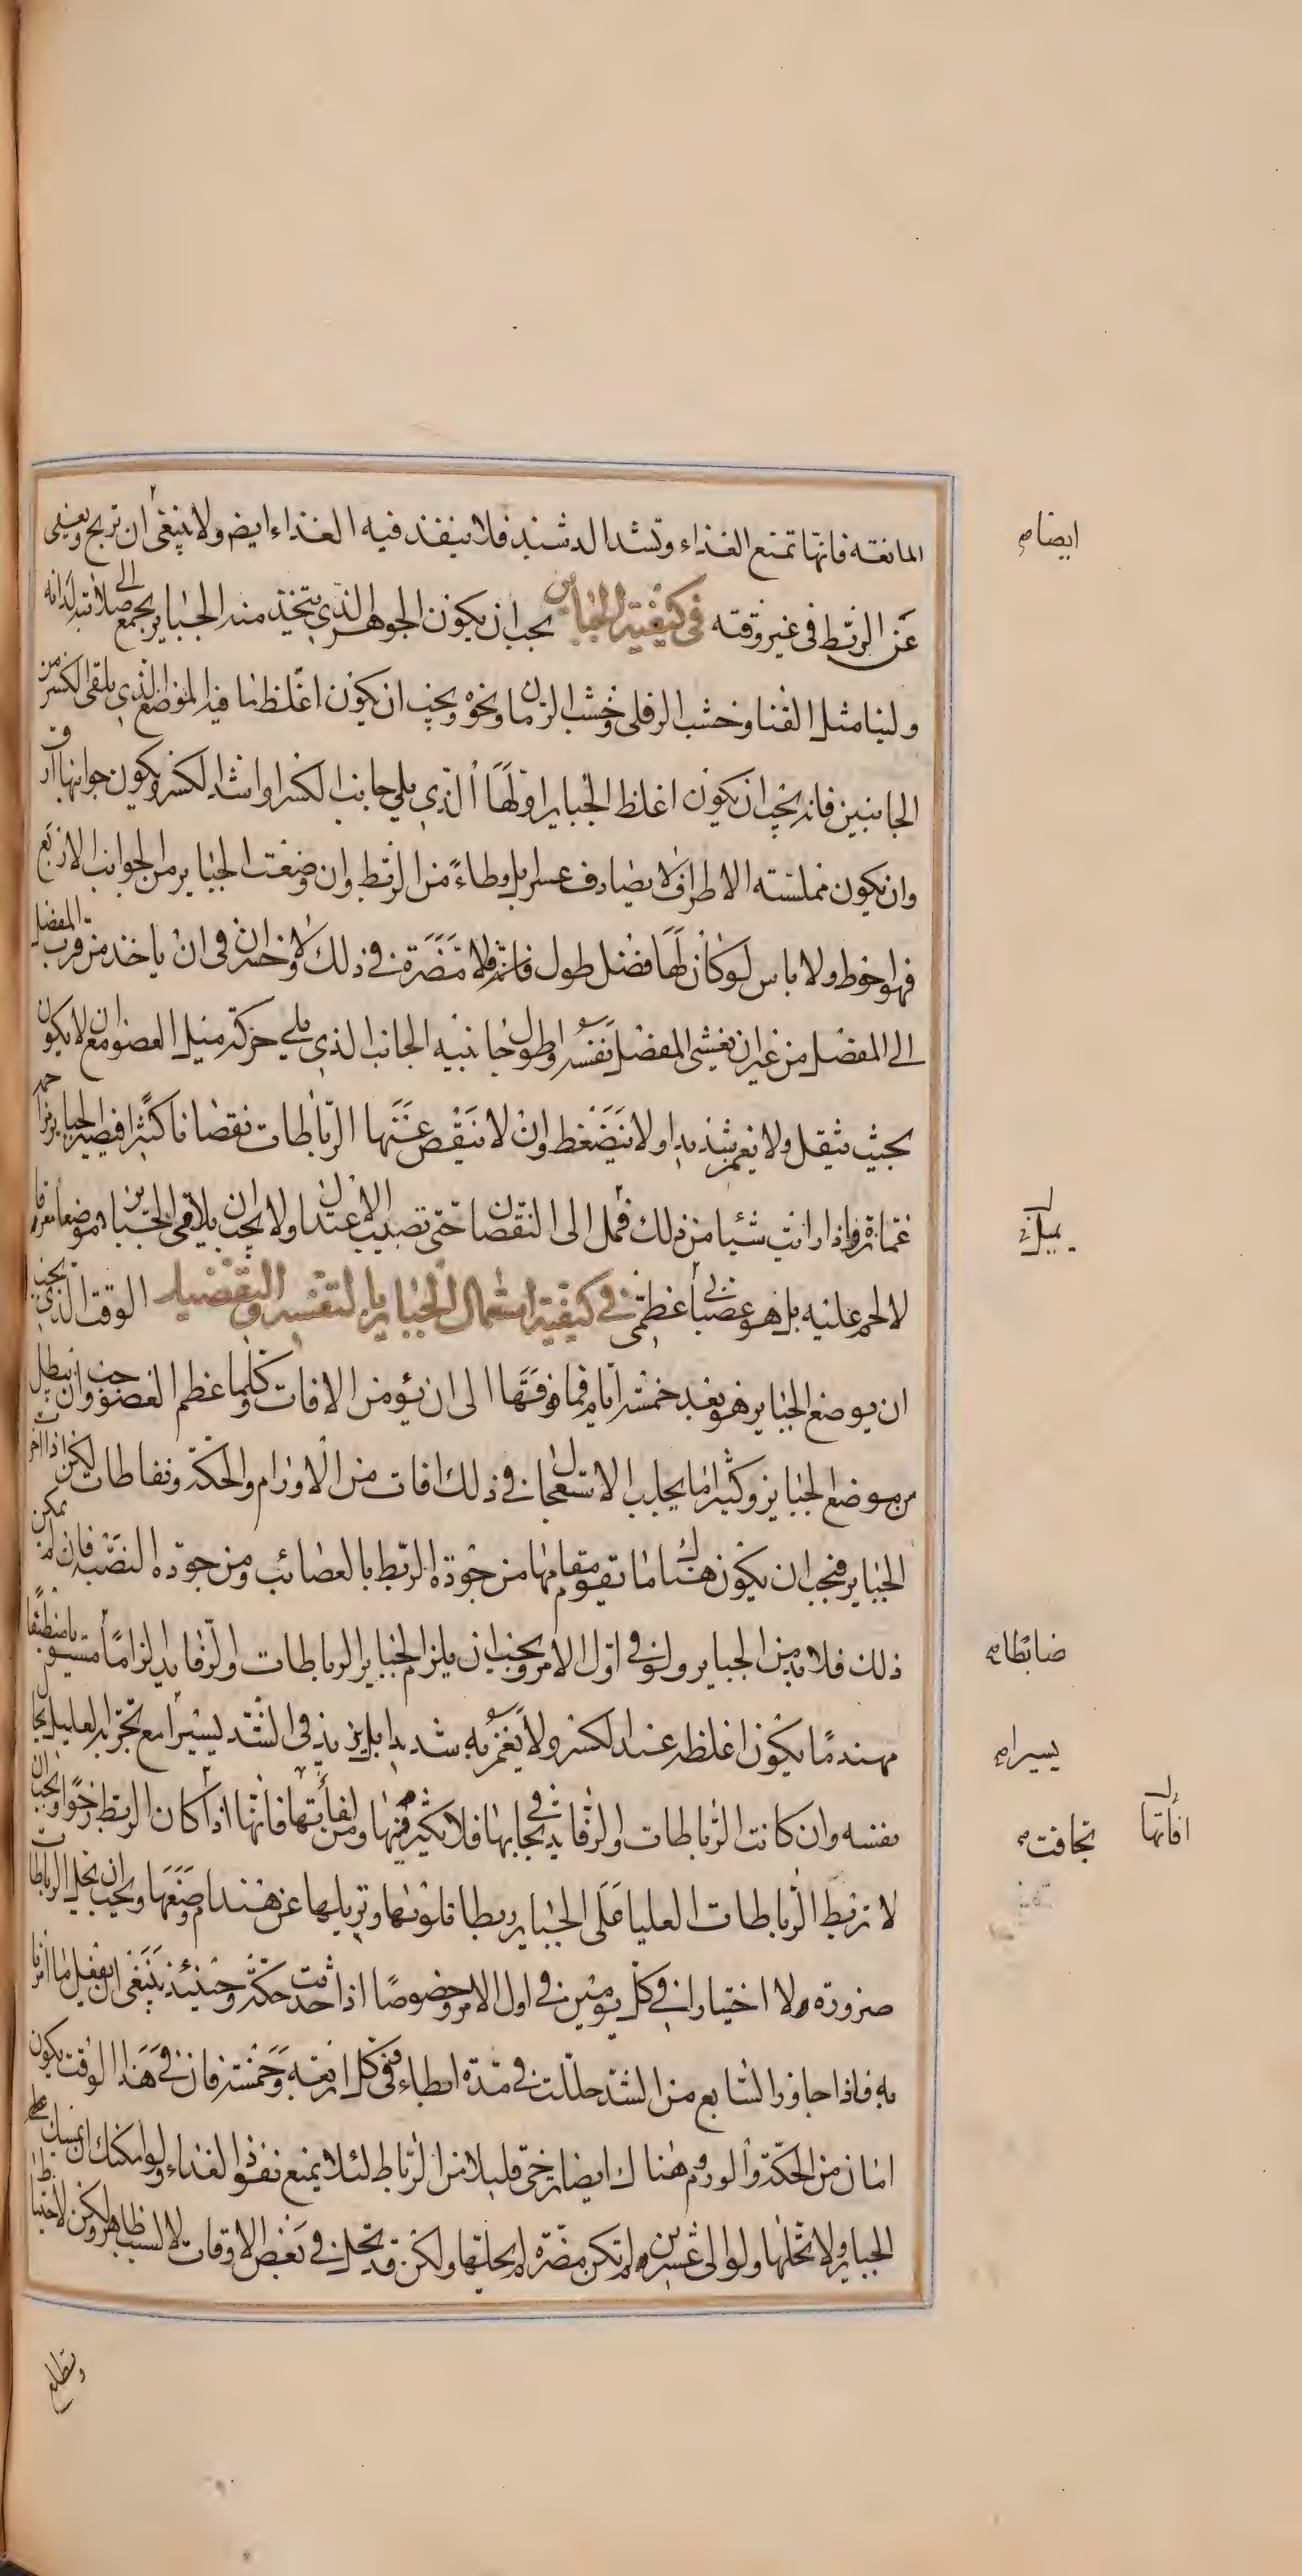 المانعه فانها تمنع الغذاء وتشد الدشبذ فلا ينفذ فيه الغذاء ايضا ولا ينبغى ان تربح ويغنى
عن الربط فى غير وقته فى كيفية الجبائر يجب ان يكون الجوهر الذى يتخذ منه الجباير يجمع الى صلابته لدانه
ولينا مثل القنا وخشب الرفلى وخشب الرمان ونحوه ويجب ان يكون اغلظ ما فيه الموضع الذى يلقى الكسر من
الجانبين فانه يجب ان يكون اغلظ الجباير اولها الذى يلى جانب الكسر او اشد الكسر ويكون جوانبها ارق
وان يكون مملسته الاطراف لا يصادف عسرا بل وطاءً من الربط وان وضعت الجباير من الجوانب الاربع
فهو احوط ولا باس لو كان لها فضل طول فانه فلا مضرة فى ذلك ولا خسران فى ان ياخذ من قرب المفصل
الى المفصل من غير ان يغشى المفصل نفسه واطول جانبيه الجانب الذى يلى حركة ميل العضو مع ان لا يكون
بحيث يثقل ولا يغمز شديدا ولا ينضغط وان لا ينقص عنها الرباطات نقصانا كثيرا فيصير الجباير
غمازة واذا رايت شيئا من ذلك فمل الى النقصان حتى تصيب الاعتدال ولا يجب ان يلاقى الجباير موضعا معرقا
لا لحم عليه بل هو عصبى عظمى فى كيفية استعمال الجباير بالتفسير والتفصيل الوقت الذى يجب
ان يوضع الجباير هو بعد خمسة ايام فما فوقها الى ان يؤمن الافات وكلما عظم العضو وجب ان يبطل
من موضع الجباير وكثيرا ما يجلب الاستعجال فى ذلك افات من الاورام والحكة ونفاطات لكن اذا اخرت
الجباير فيجب ان يكون هناك ما يقوم مقامها من جودة الربط بالعصائب ومن جودة النصبة فان لم يمكن
ذلك فلا بد من الجباير ولو فى اول الامر ويجب ان يلزم الجباير الرباطات والرفايد الزاما مستويا منطبقا
مهندما يكون اغلظه عند الكسر ولا يغمز به شديدا بل يزيد فى الشد يسيرا مع تجربة العليل بحال
نفسه وان كانت الرباطات والرفايد فى تجافيها فلا يكثر منها ومن لفائفها فانها اذا كان الربط رخوا ويجب ان
لا تربط الرباطات العليا على الجباير ربطا تلويها وتزيلها عن هندام وضعها ويجب ان يحل الرباطات
ضرورة ولا اختيارا فى كل يومين فى اول الامر وخصوصًا اذا حدثت حكة وحينئذ ينبغى ان يفعل ما امرنا
به فاذا جاوز السابع من الشد حللت فى مدة ابطاء ففى كل اربعة وخمسة فان فى هذا الوقت يكون
امان من الحكة والورم وهناك ايضا يرخى قليلا من الرباط لئلا يمنع نفوذ الغذاء ولو امكنك ان تمسك
الجباير ولا تحلها ولو الى عشرين ولم تكن مضرة لم يحلها ولكن قد يحل فى بعض الاوقات لا لسبب ظاهر ولكن لاحتياط
ايضا
يميل
ضابطا
يسيرا
افاتها
تجافت
وتطلع